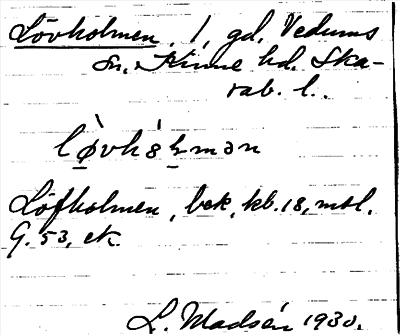 Lövholmen, 1, gd, Vedums
sn, Kinne hd. Ska-
rab. l.
Löfholmen, bek, kb. 18, mtl.
G. 53, ek.
L. Madsén 1930.